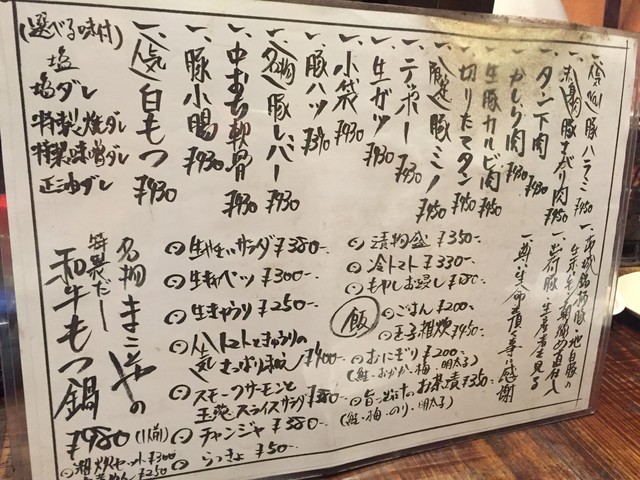 一、〈人気No.1〉豚ハラミ ¥450
一、赤身肉 豚まがり肉 ¥450
一、タン下肉 ¥430
一、かしら肉 ¥430
一、生豚カルビ肉 ¥450
一、切りたてタン ¥450
一、豚ミノ ¥450
一、テッポー ¥430
一、生ガツ ¥430
一、小袋 ¥430
一、豚ハツ ¥390
一、〈名物〉豚レバー ¥430
一、中おち軟骨 ¥430
一、豚小腸 ¥430
一、〈人気〉白もつ ¥430
(選べる味付)
塩
塩ダレ
特製焼ダレ
特製味噌ダレ
正油ダレ
一、茨城銘柄豚・地白豚の
一、出荷豚・生産者を見る
一、尊い生命を頂く事に感謝
漬物盛 ¥350-.
冷トマト ¥330-.
もやしお浸し ¥180
飯
ごはん ¥200
玉子雑炊 ¥450
おにぎり ¥200-
(鮭・おかか・梅・明太子)
旨っ出汁のお茶漬 ¥350
(鮭・梅・のり・明太子)
生キャベツ ¥300-.
生きゅうり ¥250-.
人気 トマトときゅうりのさっぱり和え ¥400-.
スモークサーモンと玉葱スライスサラダ ¥380-.
チャンジャ ¥380-.
らっきょ ¥50-.
名物
特製だし
和牛もつ鍋
¥980(1人前)
雑炊セット ¥300
¥250